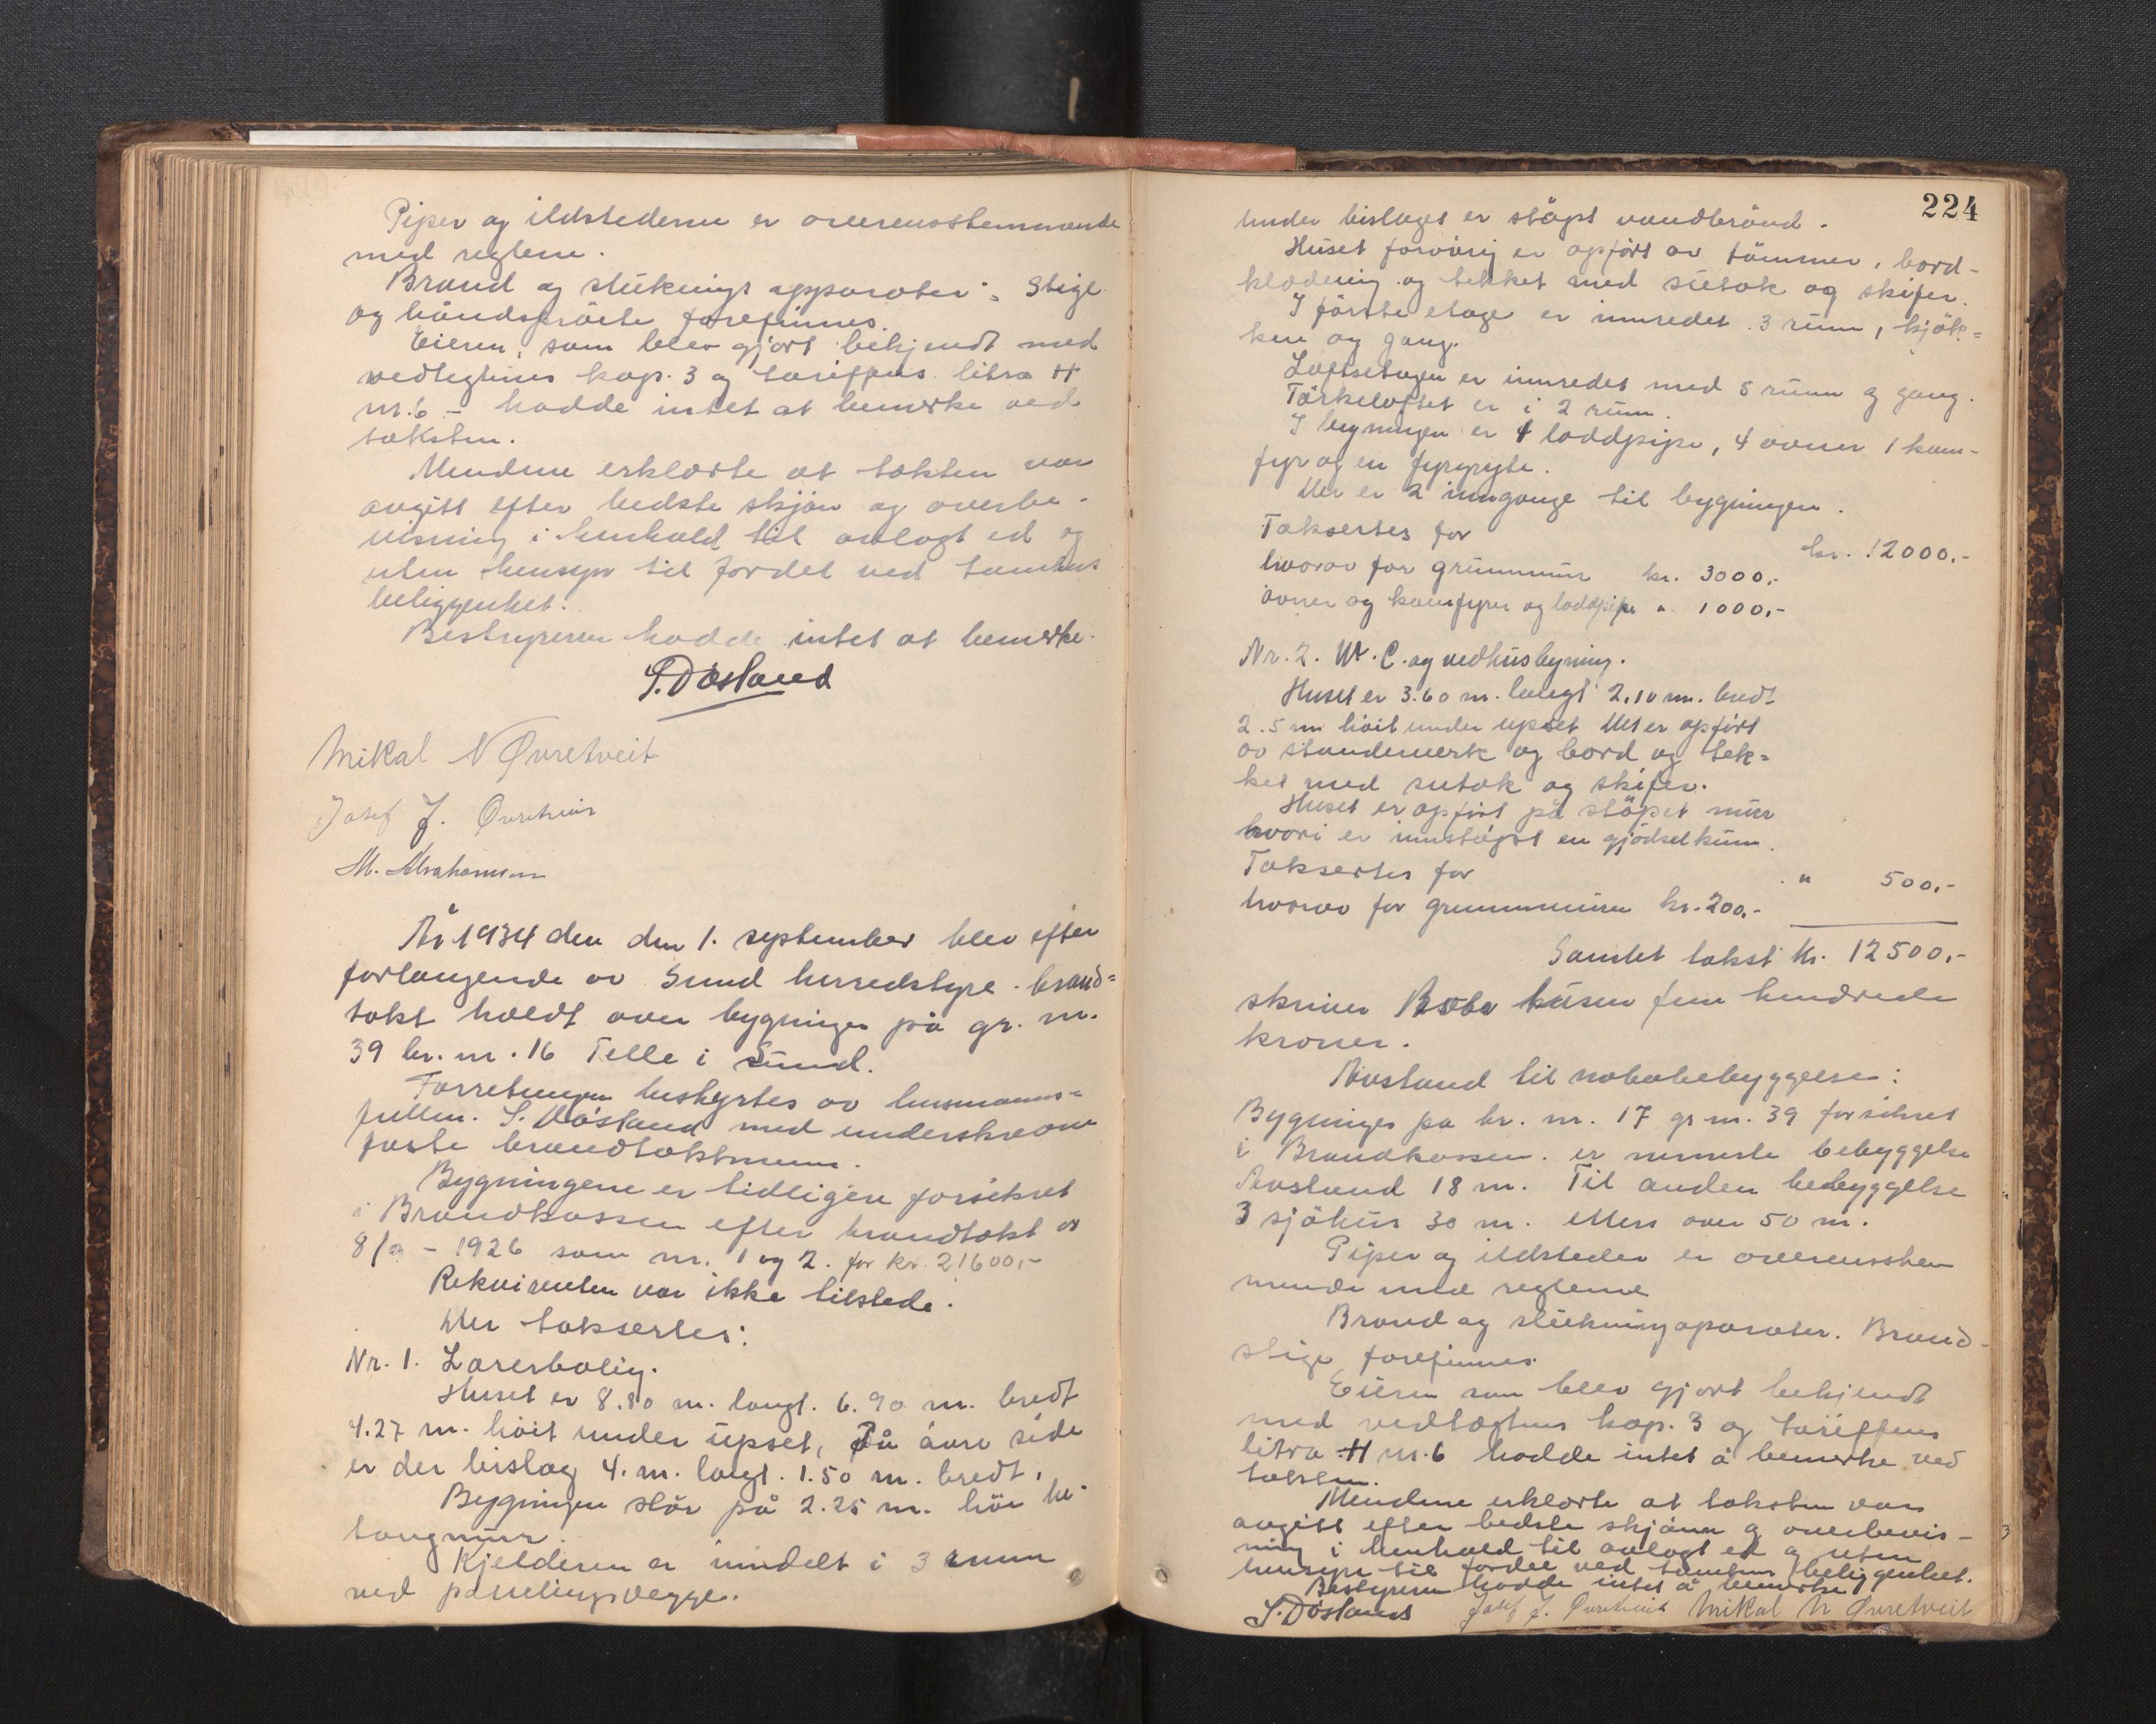 Piper og ildstederne er overensstemmende
med reglene.
Brand og slukningsapparater: Stige
og håndsprøite forefinnes.
Eieren, som blev gjort bekjendt med
vedtegtenes kap. 3 og tariffens litra H
nr. 6 – hadde intet at bemerke ved
taksten.
Mendene erklærte at taksten var
avgitt efter bedste skjøn og overbe-
visning i henhold til avlagt ed og
uten hensyn til fordel ved tomtens
beliggenhet.
Bestyreren hadde intet at bemerke.
S. Døsland
Mikal N Øvretveit
Josef J. Øvretveit
M. Abrahamsen
År 1934 den den 1. september blev efter
forlangende av Sund herredstyre brand=
takst holdt over bygninger på gr. nr.
39 br. nr. 16 Telle i Sund.
Forretningen bestyrtes av lensmanns=
fullm. S. Døsland med underskrevne
faste brandtakstmenn.
Bygningene er tidligere forsikret
i Brandkassen efter brandtakst av
8/9 – 1926 som nr. 1 og 2. for kr. 21600,-
Rekvirenten var ikke tilstede.
Der taksertes:
Nr. 1. Lærerbolig.
Huset er 8.80 m. langt. 6.90 m. bredt
4.27 m. høit under upset, På øvre side
er der bislag 4. m. langt. 1.50 m. bredt.
Bygningen står på 2.25 m. høi be-
tongmur.
Kjelderen er inndelt i 3 rumm
ved panelingsvegge.
224
under bislaget er støpt vandbrønd.
Huset forøvrig er opført av tømmer, bord-
klædning og tekket med sutak og skifer.
I første etage er innredet 3 rumm, kjøk=
ken og gang.
Loftsetagen er innredet med 5 rumm og gang.
Tørkeloftet er i 2 rumm.
I bygningen er 1 loddpipe, 4 ovner 1 kom-
fyr og en fyrgryte.
Der er 2 innganger til bygningen.
Taksertes for kr. 12000,-
hvorav for grunnmur kr. 3000,-
ovner og komfyrer og loddpipe " 1000,-
Nr. 2. W.C. og vedhusbygning.
Huset er 3.60 m. langt 2.10 m. bredt
2.5 m høit under upset Det er opført
av standerverk og bord og tek=
ket med sutak og skifer.
Huset er opført på støpet mur
hvori er innstøpt en gjødselkum.
Taksertes for " 500,-
hvorav for grunnmuren kr. 200,-
Samlet takst kr. 12500,-
skriver tusen fem hundrede
kroner.
Avstand til nabobebyggelse:
Bygninger på br. nr. 17 gr. nr. 39 forsikret
i Brandkassen er nermeste bebyggelse
Avstand 18 m. Til anden bebyggelse
3 sjøhus 30 m. ellers over 50 m.
Piper og ildsteder er overensstem
mende med reglene
Brand og slukningaparater. Brand-
stige forefinnes.
Eieren som blev gjort bekjendt
med vedtægtens kap. 3 og tariffens
litra H nr. 6 hadde intet å bemerke ved
taksten.
Mendene erklærte at taksten var
avgitt efter bedste skjønn og overbevis-
ning i henhold til avlagt ed og uten
hensyn til fordel ved tomtens beligenhet.
Bestyreren hadde intet å bemerke
S. Døsland Josef J. Øvretveit Mikal N Øvretveit